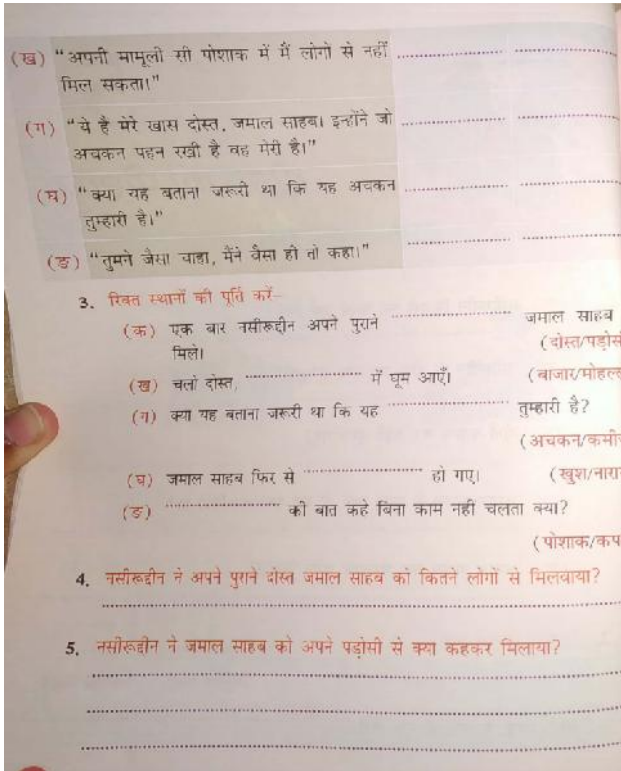 (ख) “अपनी मामूली सी पोशाक में मैं लोगों से नहीं ........................ ........................
मिल सकता।”
(ग) “ये है मेरे खास दोस्त, जमाल साहब। इन्होंने जो ........................ ........................
अचकन पहन रखी है वह मेरी है।”
(घ) “क्या यह बताना जरूरी था कि यह अचकन ........................ ........................
तुम्हारी है।”
(ङ) “तुमने जैसा चाहा, मैंने वैसा ही तो कहा।” ........................ ........................
3. रिक्त स्थानों की पूर्ति करें–
(क) एक बार नसीरूद्दीन अपने पुराने ........................ जमाल साहब
मिले। (दोस्त/पड़ोस
(ख) चलो दोस्त, ........................ में घूम आएँ। (बाजार/मोहल्ल
(ग) क्या यह बताना जरूरी था कि यह ........................ तुम्हारी है?
(अचकन/कमी
(घ) जमाल साहब फिर से ........................ हो गए। (खुश/नारा
(ङ) ........................ की बात कहे बिना काम नहीं चलता क्या?
(पोशाक/कप
4. नसीरूद्दीन ने अपने पुराने दोस्त जमाल साहब को कितने लोगों से मिलवाया?
........................
5. नसीरूद्दीन ने जमाल साहब को अपने पड़ोसी से क्या कहकर मिलाया?
........................
........................
........................